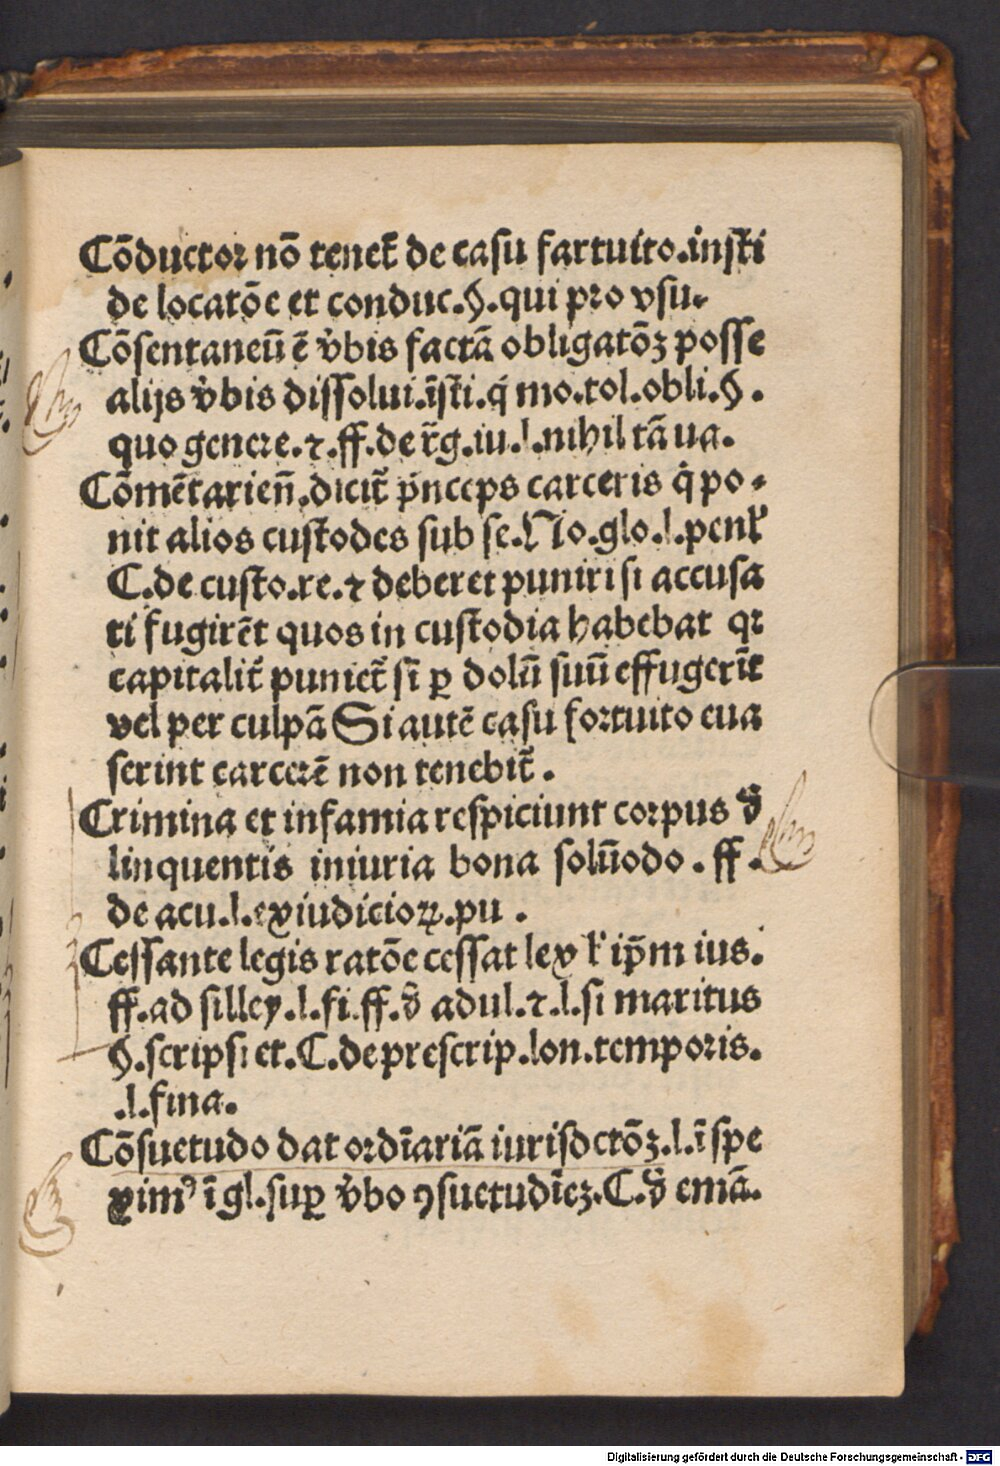 Cōductor nō tenet̄ de casu fartuito.insti
de locatōe et conduc.§.qui pro vsu.
Cōsentaneū ē v̓bis factā obligatōꝫ posse
alijs v̓bis dissolui.īsti.q̇ mo.tol.obli.§.
quo genere.⁊.ff.de r̄g.iu.l.nihil tā ua.
Cōmētarien̄.dicit̄ p̄nceps carceris q̇ po-
nit alios custodes sub se.No.glo.l.penl̓
C.de custo.re.⁊ deberet puniri si accusa
ti fugirēt quos in custodia habebat qꝛ
capitalit̄ puniet̄ sī ꝑ dolū suū effugerīt
vel per culpā Si autē casu fortuito eua
serint carcerē non tenebit̄.
Crimina et infamia respiciunt corpus d̓
linquentis iniuria bona solūodo.ff.
de acu.l.ex iudicioꝝ.pu.
Cessante legis ratōe cessat lex l̓ ip̄m ius.
ff.ad silley.l.fi.ff.d̓ adul.⁊.l.si maritus
§.scripsi et.C.de prescrip.lon.temporis.
.l.fina.
Cōsuetudo dat ordīariā iurisdctōꝫ.l.ī spe
ximꝰ ī gl.suꝑ v̓bo ꝯsuetudīeꝫ.C.d̓ emā.
Digitalisierung gefördert durch die Deutsche Forschungsgemeinschaft - DFG